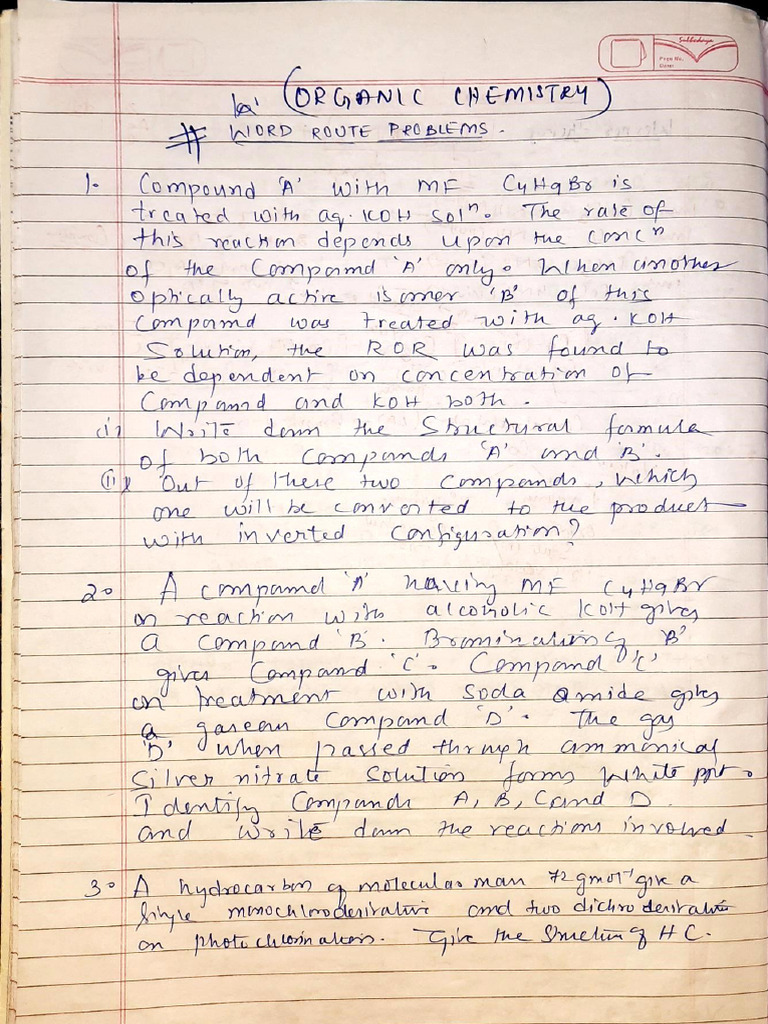 Page No.
(ORGANIC CHEMISTRY)
# WORD ROUTE PROBLEMS.
1. Compound 'A' with MF C4H9Br is
treated with aq. KOH Solⁿ. The rate of
this reaction depends upon the concⁿ
of the Compound 'A' only. When another
optically active isomer 'B' of this
Compound was treated with aq. KOH
Solution, the ROR was found to
be dependent on concentration of
Compound and KOH both.
(i) Write down the Structural formula
of both compounds 'A' and 'B'.
(ii) Out of these two compounds, which
one will be converted to the product
with inverted configuration?
2. A compound 'A' having MF C4H9Br
on reaction with alcoholic KOH gives
a compound 'B'. Bromination of 'B'
gives Compound 'C'. Compound 'C'
on treatment with soda amide gives
a gaseous compound 'D'. The gas
'D' when passed through ammonical
Silver nitrate solution forms White ppt.
Identify Compounds A, B, C and D
and write down the reactions involved.
3. A hydrocarbon of molecular mass 72 gmol⁻¹ give a
single monochloroderivative and two dichloro derivative
on photochlorination. Give the structure of HC.